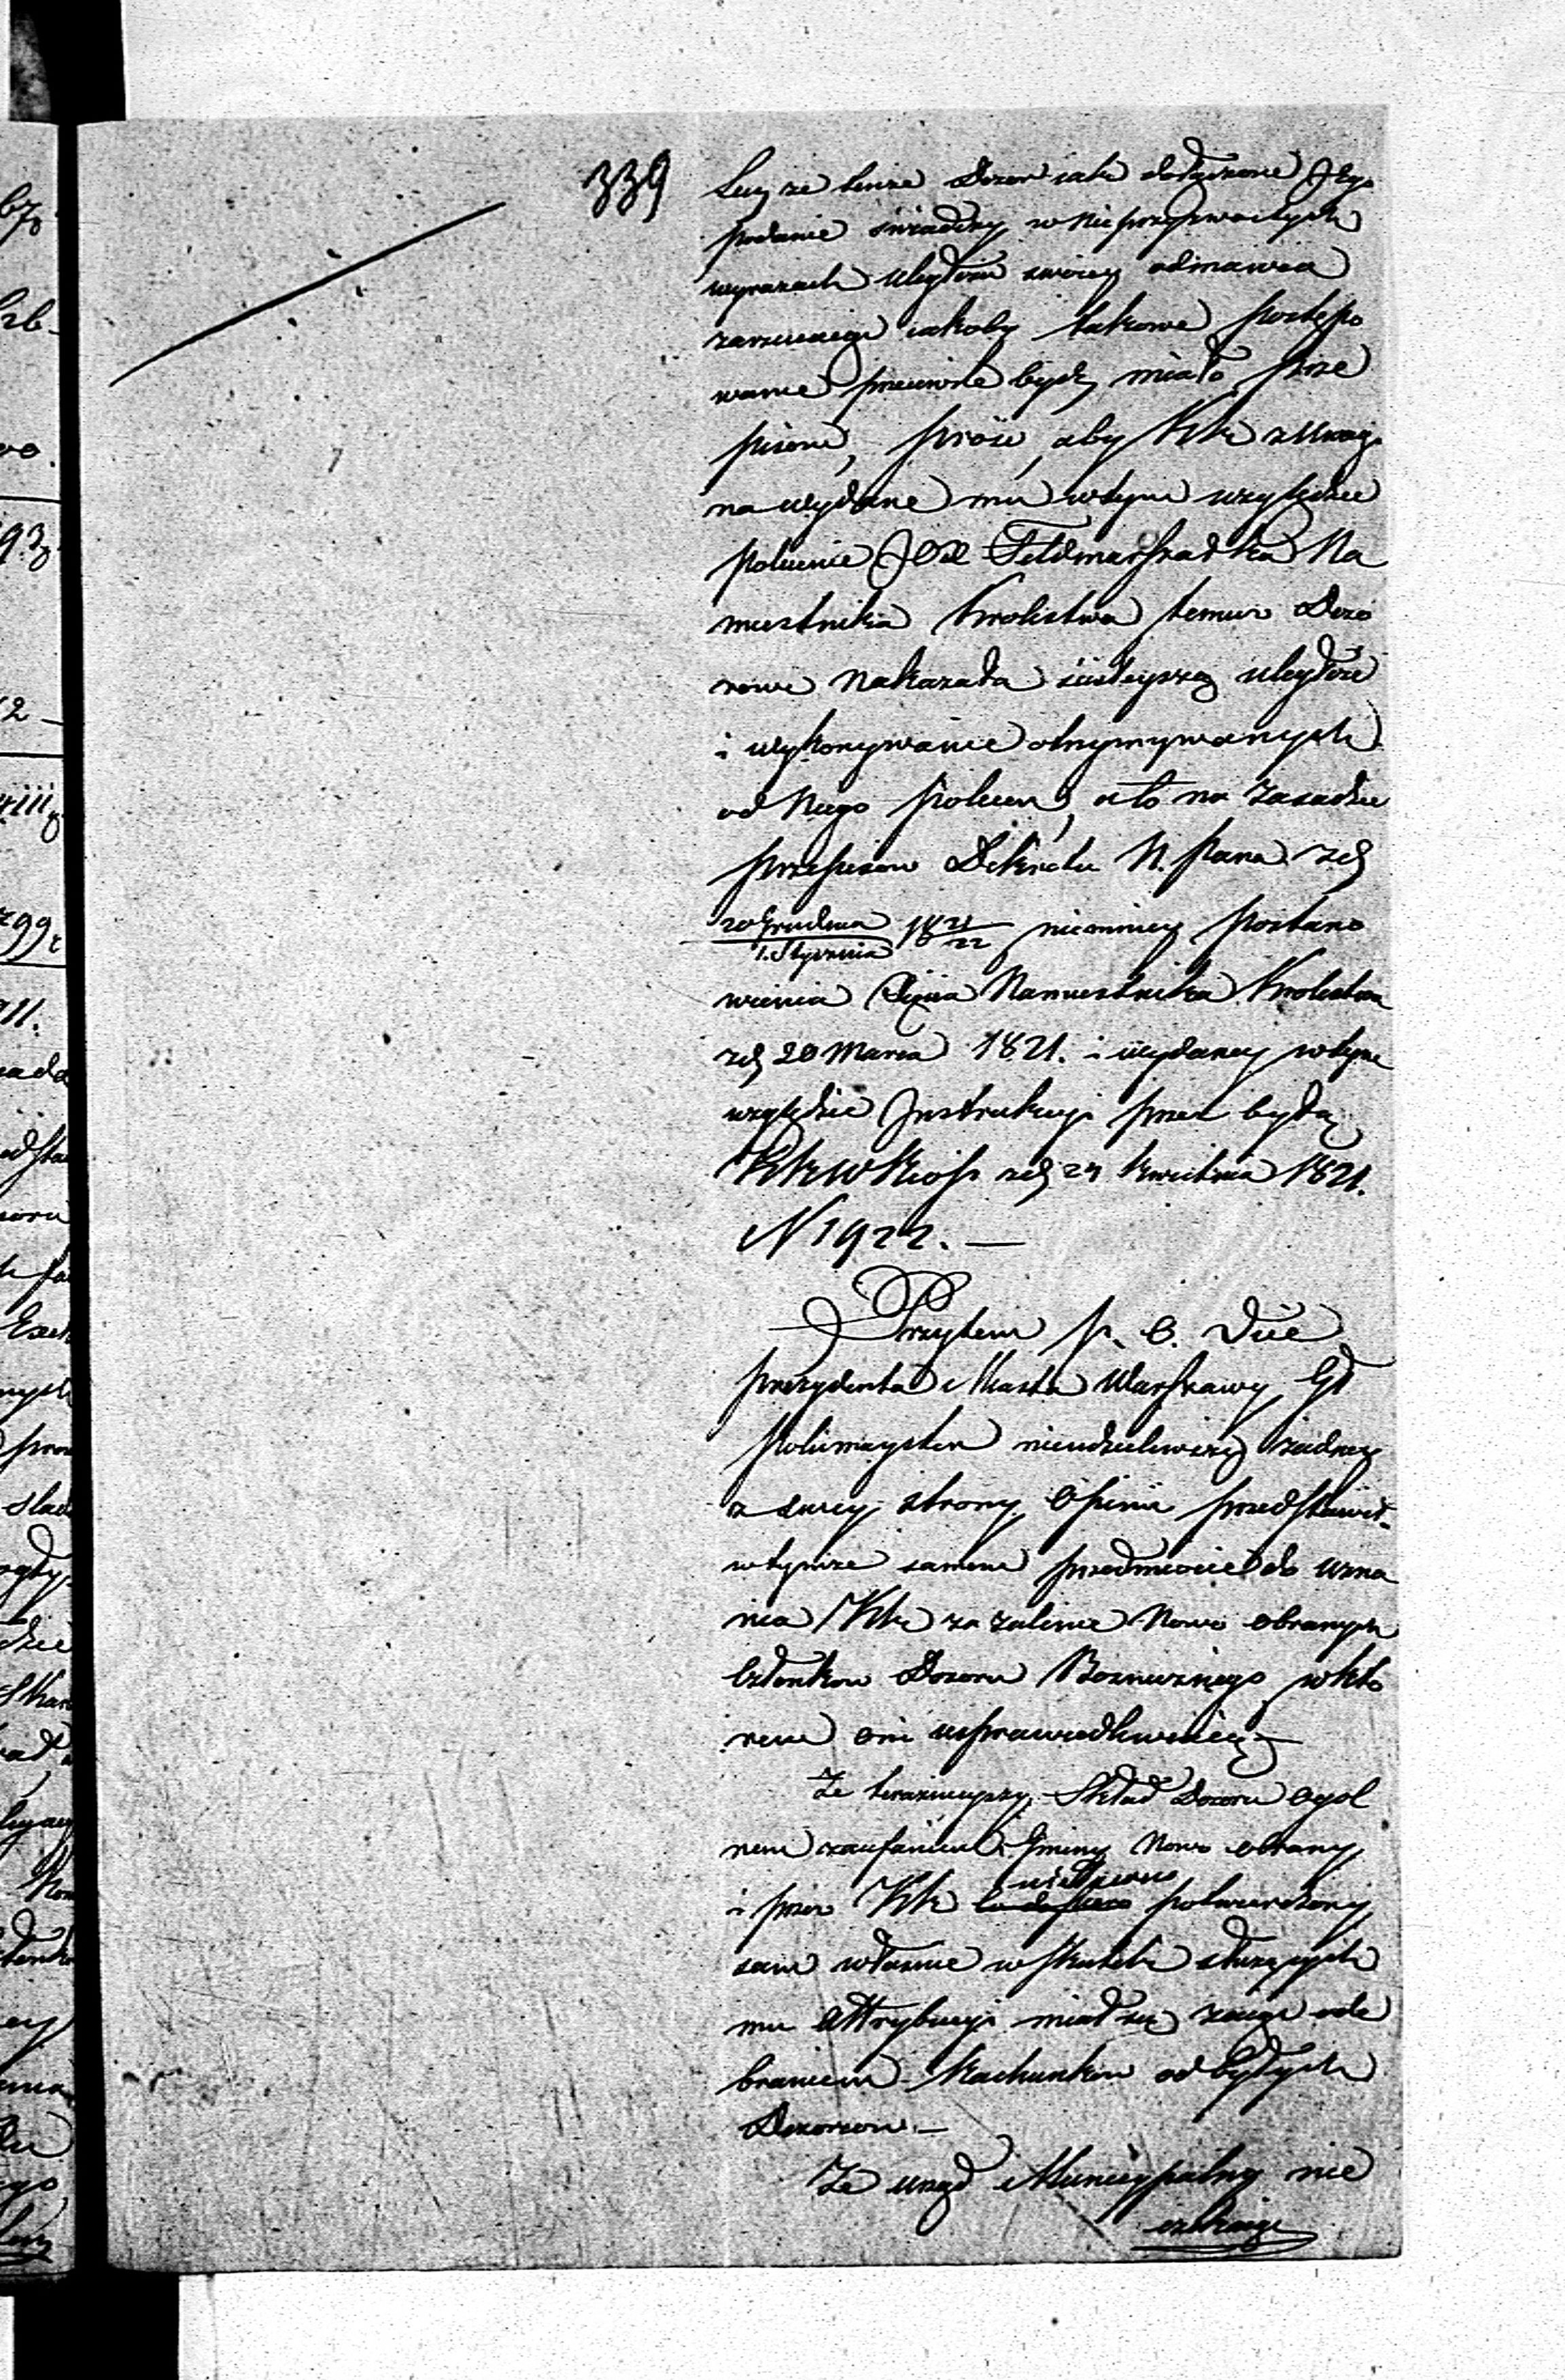 339
Lecz że tenże Dozór iak dołączone Jego
podanie świadczy w nieprzyzwoitych
wyrazach uległości swoiey odmawia
zarzucaiąc iakoby takowe postępo
wanie przeciwne bydź miało prze
pisom, prosi, aby KRz z uwagi
na wydane mu w tym względzie
polecenie JOX Feldmarszałka Na
miestnika Królestwa temuż Dozo
rowi nakazała ściśleyszą uległość
i wykonywanie otrzymywanych
od Niego poleceń, a to na zasadzie
przepisów Dekretu N. Pana z d.
20 Grudnia / 1. Stycznia 18 21/22 niemniey postano
wienia Xięcia Namiestnika Królestwa
z d. 20 Marca 1821. i wydaney w tym
względzie Instrukcyi przez byłą
z d. 24 Kwietnia 1821.
N 1922. —
Przytem p. o. Vice
prezydenta Miasta Warszawy, Gł
Policmayster nieudzieliwszy żadney
z swey strony Opinii przedstawił
w tymże samem przedmiocie do uzna
nia KRz zażalenie Nowo obranych
Członków Dozoru Bożniczego, w któ
rem oni usprawiedliwiaią —
Że teraźnieyszy Skład Dozoru ogól
nem zaufaniem Gminy Nowo obrany
i przez KRz niedawno potwierdzony
sam właśnie w skutek służących
mu Attrybucyi miał się zaiąć ode
braniem Rachunków od byłych
Dozorców. —
Że urząd Municypalny nie
czekaiąc